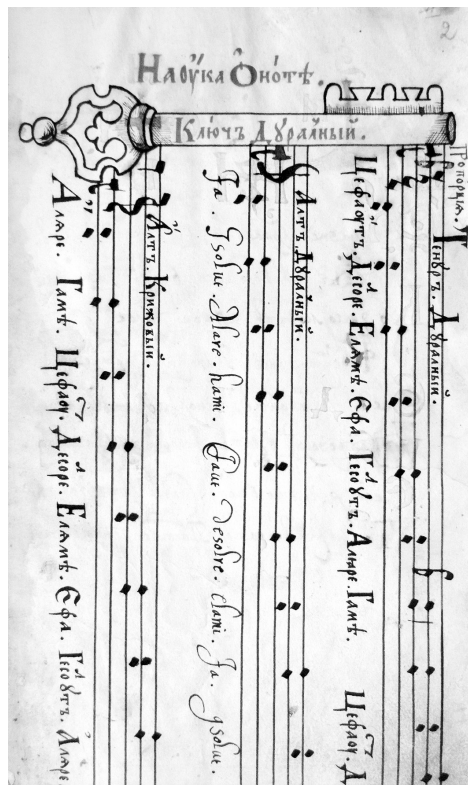 2
Наѹка Ѻ нотѣ.
Ключъ Дуралный.
Пропорциѧ.
Тенѡръ. Дуралный.
Цефаоутъ. Десорe. Елѧмѣ. Єфа. Гесоутъ. Алѧмре. Гамѣ. Цефаоу.
Алтъ Дуралный.
Fa. Gsolue. Alare. hami. Caue. Desolre. elami. Fa. gsolue.
Алтъ. Крижовый.
Алѧре. Гамѣ. Цефаоу. Десоре. Елѧмѣ. Єфа. Гесоутъ. Алѧре